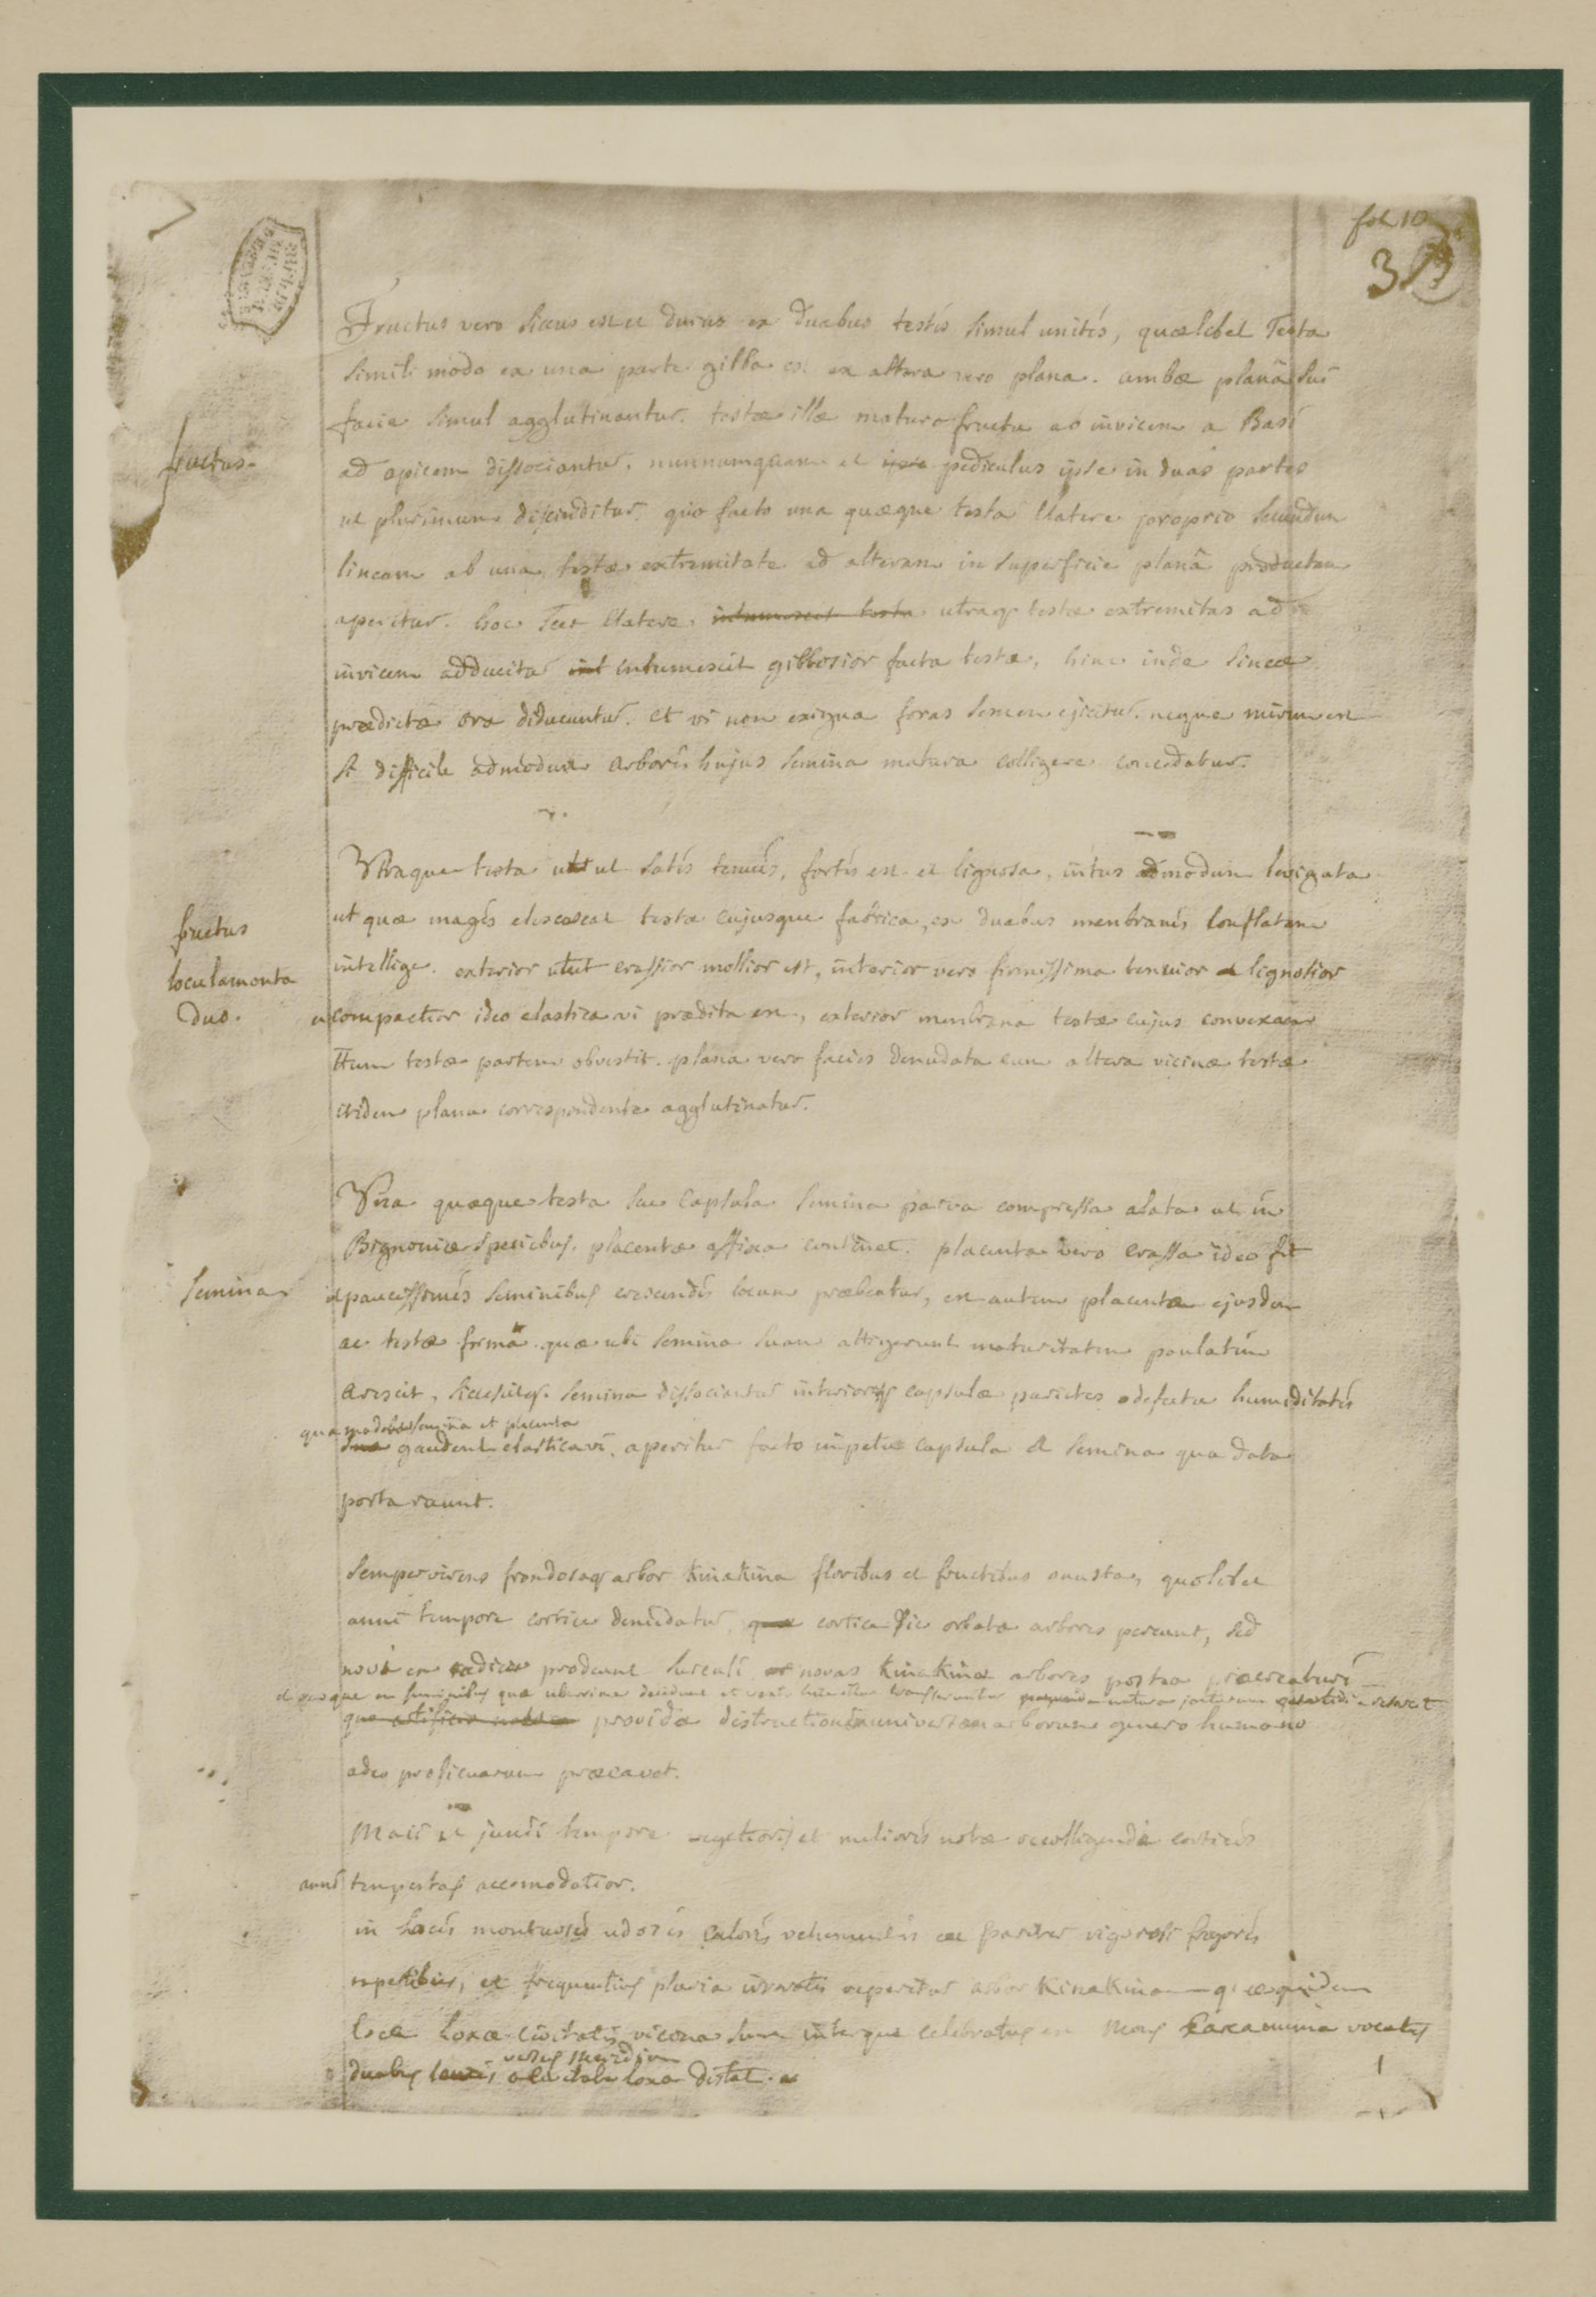 fol 10
Fructus vero siccus est et durus ex duabus testis simul unitis, quælibet Testa
simili modo ex una parte gibba est ex altera vero plana. ambæ planâ sui
facie simul agglutinantur. testæ illæ maturo fructu ab invicem a Basi
fructus
ad apicem dissociantur, nunnumquam et ipse pediculus ipse in duas partes
ut plurimum discinditur, quo facto una quæque testa elatere proprio secundum
lineam ab una testæ extremitate ad alteram in superficie planâ productam
aperitur. hoc elatere intumescit testa utraq testæ extremitas ad
invicem adducitur int intumescit gibbosior facta testa, hinc inde lineæ
prædictæ oræ diducuntur. et vi non exigua foras semen ejicitur. neque mirum est
si difficile admodum arboris hujus semina matura colligere concedatur.
Utraque testa ut ut satis tenuis, fortis est et lignosa, intus admodum levigata
fructus
loculamenta
duo.
ut quæ magis elescescat testæ cujusque fabrica, ex duabus membranis conflatam
intellige. exterior utut crassior mollior est, interior vero firmissima tenuior et lignosior
compactior ideo elastica vi prædita est, exterior membrana testæ cujus convexam
testæ partem obvestit. plana vero facies denudata cum altera vicinæ testæ
itidem plana correspondente agglutinatur.
Una quæque testa seu capsula semina parva compressa alata ut in
Bignoniæ speciebus, placentæ affixa continet. placenta vero crassa ideo fit
semina
paucissimis seminibus crescendis locum præbeatur, est autem placenta ejusdem
ac testæ forma quæ ubi semina suam attigerunt maturitatem paulatim
arescit, siccisque semina dissociantur interiores capsulæ parietes defectu humiditatis
semina et placenta
gaudent elastica vi, aperitur facto impetu capsula et semina qua data
porta ruunt.
Sempervirens frondosaq arbor kinakina floribus et fructibus onusta, quolibet
anni tempore cortice denudatur, quæ cortice sic orbatæ arbores pereunt, sed
novi ex radice prodeunt surculi et novas kinakinæ arbores postea procreaturi
providæ destructionem universam arborum genero humano
adeo proficuarum præcavet.
Maii et junii tempore vegetioris et melioris notæ recolligenda corticis
anni tempestas accomodatior.
in locis montuosis udosis caloris vehementis ac pariter vigorosi frigoris
expertibus, et frequentius pluvia irroratis reperitur arbor kinakina quæ quidem
loca Loxæ civitatis vicina sunt interque celebratus est Mons Caxanuma vocatus
versus meridiem
duabus leucis a civitate loxa distat